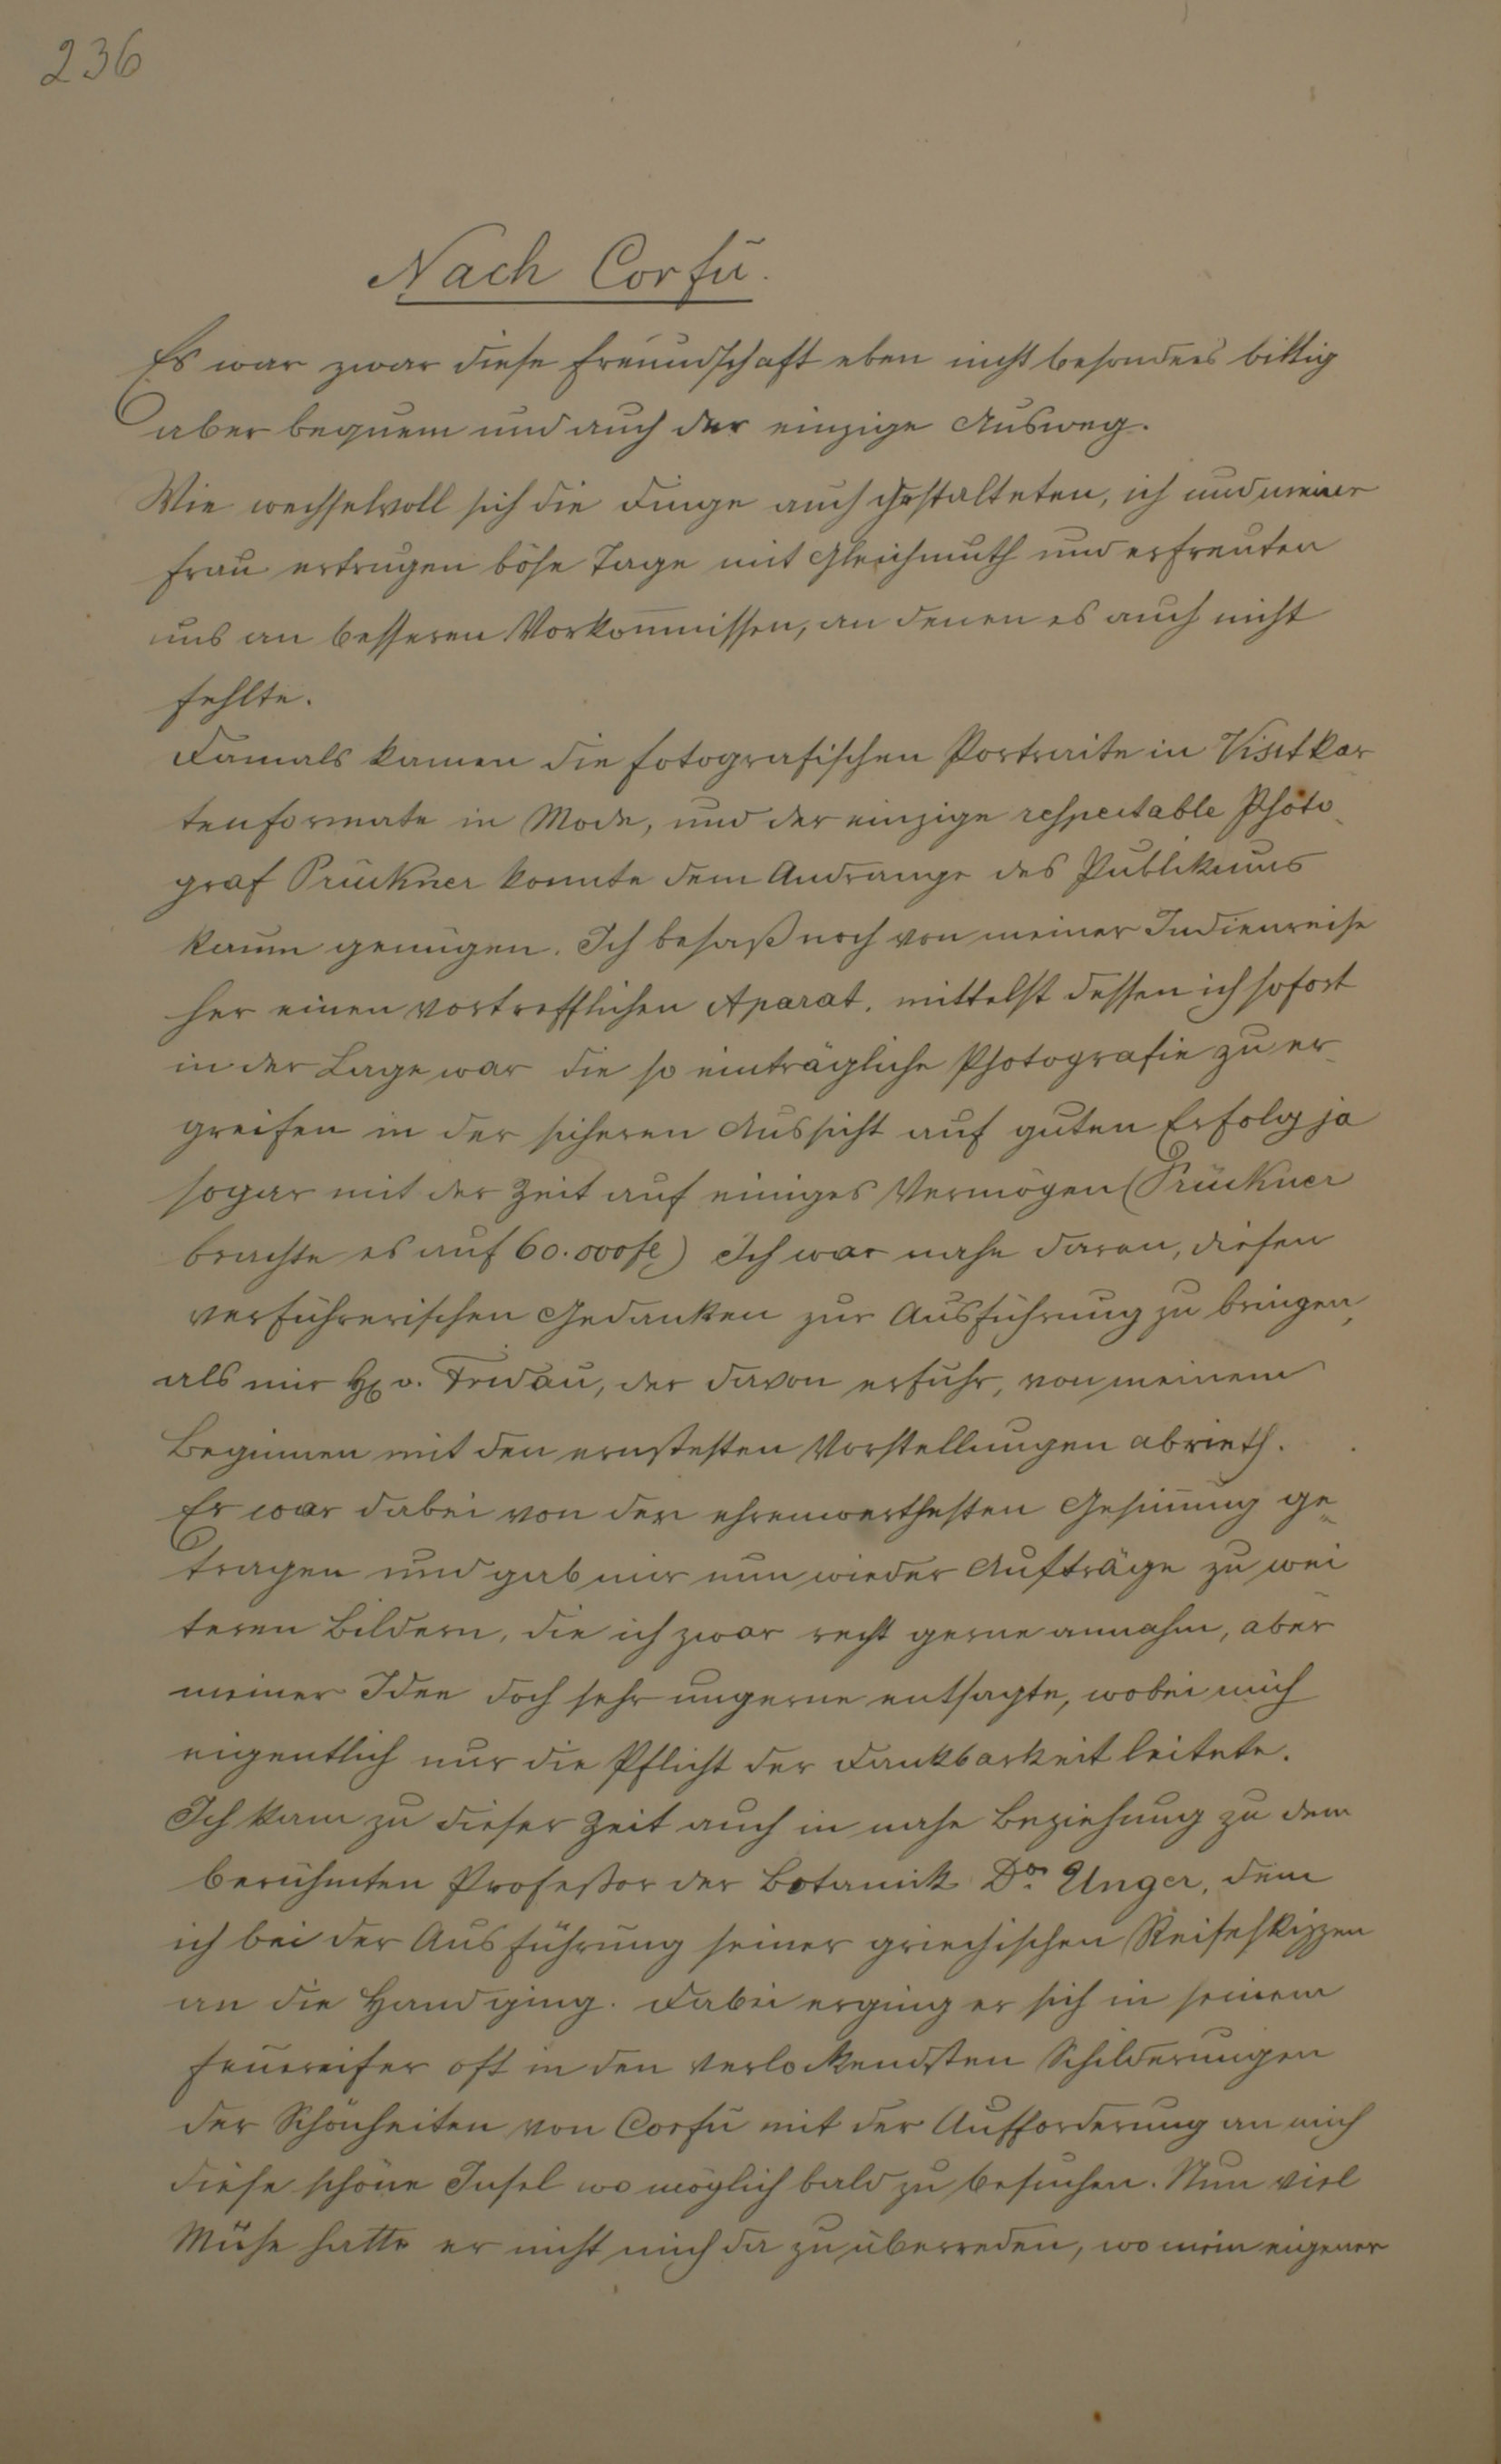 236
Nach Corfu.
Es war zwar diese Freundschaft eben nicht besonders billig
aber bequem und auch der einzige Ausweg.
Wie wechselvoll sich die Dinge auch gestalteten, ich und meine
Frau ertrugen böse Tage mit Gleichmuth und erfreuten
uns an besseren Vorkom̅nissen, an denen es auch nicht
fehlte.
Damals kamen die fotografischen Portraite in Visitkar
tenformate in Mode, und der einzige respectable Photo-
graf Prückner konnte dem Andrange des Publikums
kaum genügen. Ich besaß noch von meiner Indienreise
her einen vortrefflichen Aparat, mittelst dessen ich sofort
in der Lage war die so einträgliche Photografie zu er-
greifen in der sicheren Aussicht auf guten Erfolg ja
sogar mit der Zeit auf einiges Vermögen (Prückner
brachte es auf 60.000 fl) Ich war nahe daran, diesen
verführerischen Gedanken zur Ausführung zu bringen,
als mir H v. Fridau, der davon erfuhr, von meinem
Beginnen mit den ernstesten Vorstellungen abrieth.
Er war dabei von der ehrenwerthesten Gesin̅ung ge-
tragen und gab mir nun wieder Aufträge zu wei
teren Bildern, die ich zwar recht gerne annahm, aber
meiner Idee doch sehr ungerne entsagte, wobei mich
eigentlich nur die Pflicht der Dankbarkeit leitete.
Ich kam zu dieser Zeit auch in nahe Beziehung zu dem
berühmten Profeßor der Botanik Dr. Unger, dem
ich bei der Ausführung seiner griechischen Reiseskizzen
an die Hand ging. Dabei erging er sich in seinem
Feuereifer oft in den verlockendsten Schilderungen
der Schönheiten von Corfu mit der Aufforderung an mich
diese schöne Insel wo möglich bald zu besuchen. Nun viel
Mühe hatte er nicht mich da zu überreden, wo mein eigener